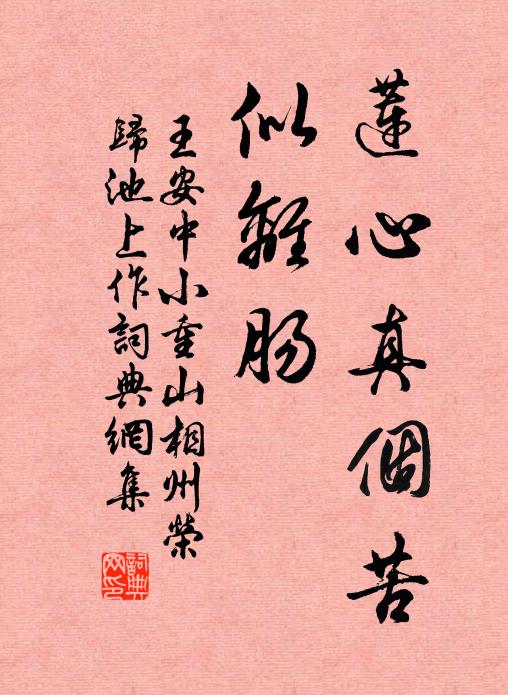 蓮心真個苦
似離腸
王安中小重山相州榮
歸池上作詞典網集
詞典
网印